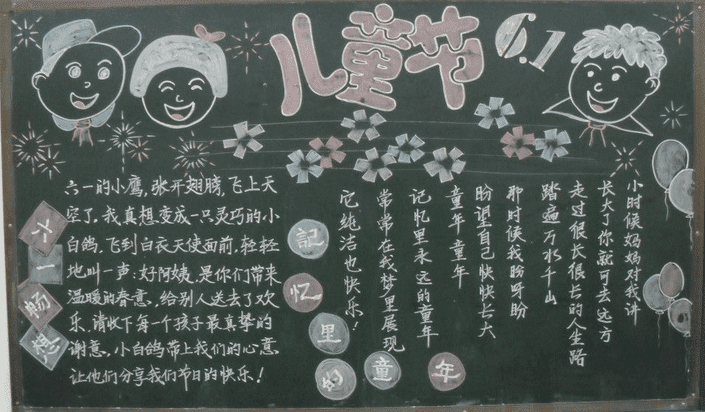 儿童节
6.1
六一畅想
六一的小鹰,张开翅膀,飞上天
空了,我真想变成一只灵巧的小
白鸽,飞到白衣天使面前,轻轻
地叫一声:好阿姨,是你们带来
温暖的春意,给别人送去了欢
乐,请收下每一个孩子最真挚的
谢意,小白鸽带上我们的心意
让他们分享我们节日的快乐!
記忆里的童年
小时候妈妈对我讲
长大了你就可去远方
走过很长很长的人生路
踏遍万水千山
那时候我盼呀盼
盼望自己快快长大
童年童年
记忆里永远的童年
常常在我梦里展现
它纯洁也快乐!